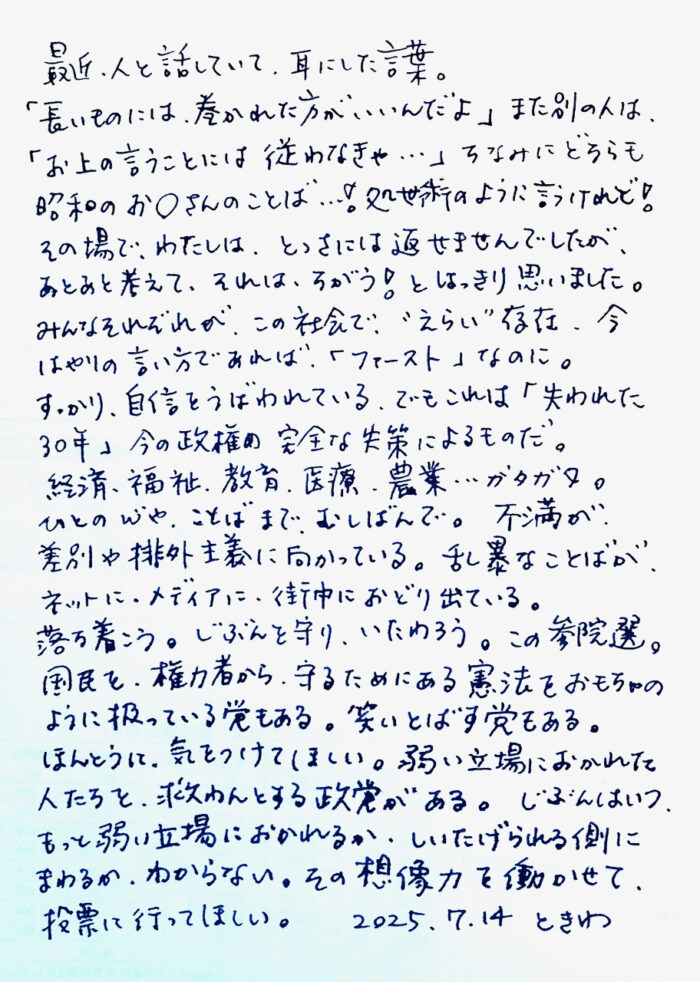 最近、人と話していて、耳にした言葉。
「長いものには、巻かれた方が、いいんだよ」また別の人は、
「お上の言うことには 従わなきゃ…」ちなみにどちらも
昭和のお○さんのことば…！処世術のように言うけれど！
その場で、わたしは、とっさには返せませんでしたが、
あとあと考えて、それは、ちがう！とはっきり思いました。
みんなそれぞれが、この社会で、“えらい”存在、今
はやりの言い方であれば、「ファースト」なのに。
すっかり、自信をうばわれている、でもこれは「失われた
30年」今の政権の 完全な失策によるものだ。
経済、福祉、教育、医療、農業…ガタガタ。
ひとの心や、ことばまで、むしばんで。 不満が、
差別や排外主義に向かっている。乱暴なことばが、
ネットに、メディアに、街中におどり出ている。
落ち着こう。じぶんを守り、いたわろう。この参院選。
国民を、権力者から、守るためにある憲法をおもちゃの
ように扱っている党もある。笑いとばす党もある。
ほんとうに、気をつけてほしい。弱い立場におかれた
人たちを、救わんとする政党がある。 じぶんはいつ、
もっと弱い立場におかれるか、しいたげられる側に
まわるか、わからない。その想像力を働かせて、
投票に行ってほしい。 2025.7.14 ときわ